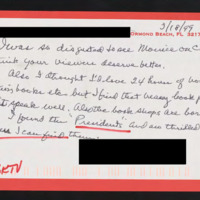 ORMOND BEACH, FL 3217
3/18/99
I was so disgusted to see Monica on C
think your viewers deserve better.
Also I thought I'd love 24 hours of
books etc. but I find that many book p
speak well. Also the book shops are bor
I found the "Presidents" and am thrilled
I can find them